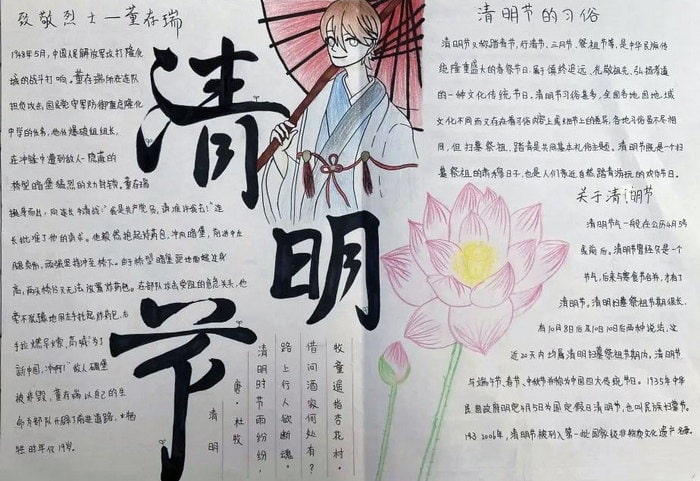 致敬烈士—董存瑞
1948年5月,中国人民解放军攻打隆化
城的战斗打响。董存瑞所在连队
担负攻击国民党守军防御重点隆化
中学的任务,他任爆破组组长,
在冲锋中遭到敌人隐蔽的
桥型暗堡猛烈的火力封锁。董存瑞
挺身而出,向连长请战:“我是共产党员,请准许我去!”连
长批准了他的请求。他毅然抱起炸药包,冲向暗堡,前进中左
腿负伤,顽强坚持冲至桥下。由于桥型暗堡距地面超过身
高,两头桥台又无法放置炸药包。在部队攻击受阻的危急关头,他
毫不犹豫地用左手托起炸药包,右
手拉燃导火索,高喊“为了
新中国,冲啊!”敌人碉堡
被炸毁,董存瑞以自己的生
命为部队开辟了前进道路,牺
牲时年仅19岁。
清明节
清明
唐·杜牧
清明时节雨纷纷,
路上行人欲断魂。
借问酒家何处有?
牧童遥指杏花村。
清明节的习俗
清明节又称踏青节、行清节、三月节、祭祖节等,是中华民族传
统隆重盛大的春祭节日,属于慎终追远、礼敬祖先、弘扬孝道
的一种文化传统节日。清明节习俗甚多,全国各地因地域
文化不同而又存在着习俗内容上或细节上的差异,各地习俗虽不尽相
同,但扫墓祭祖、踏青是共同基本礼俗主题。清明节既是一个扫
墓祭祖的肃穆日子,也是人们亲近自然、踏青游玩的欢乐节日。
关于清明节
清明节气一般在公历4月5号
或前后。清明节曾经只是一个
节气,后来与寒食节合并,才有了
清明节。清明扫墓祭祖节期很长,
有10日前8日后及10日前10日后两种说法,这
近20天内均属清明扫墓祭祖节期内。清明节
与端午节、春节、中秋节并称为中国四大传统节日。1935年中华
民国政府明定4月5日为国定假日清明节,也叫民族扫墓节。
2006年,清明节被列入第一批国家级非物质文化遗产名录。